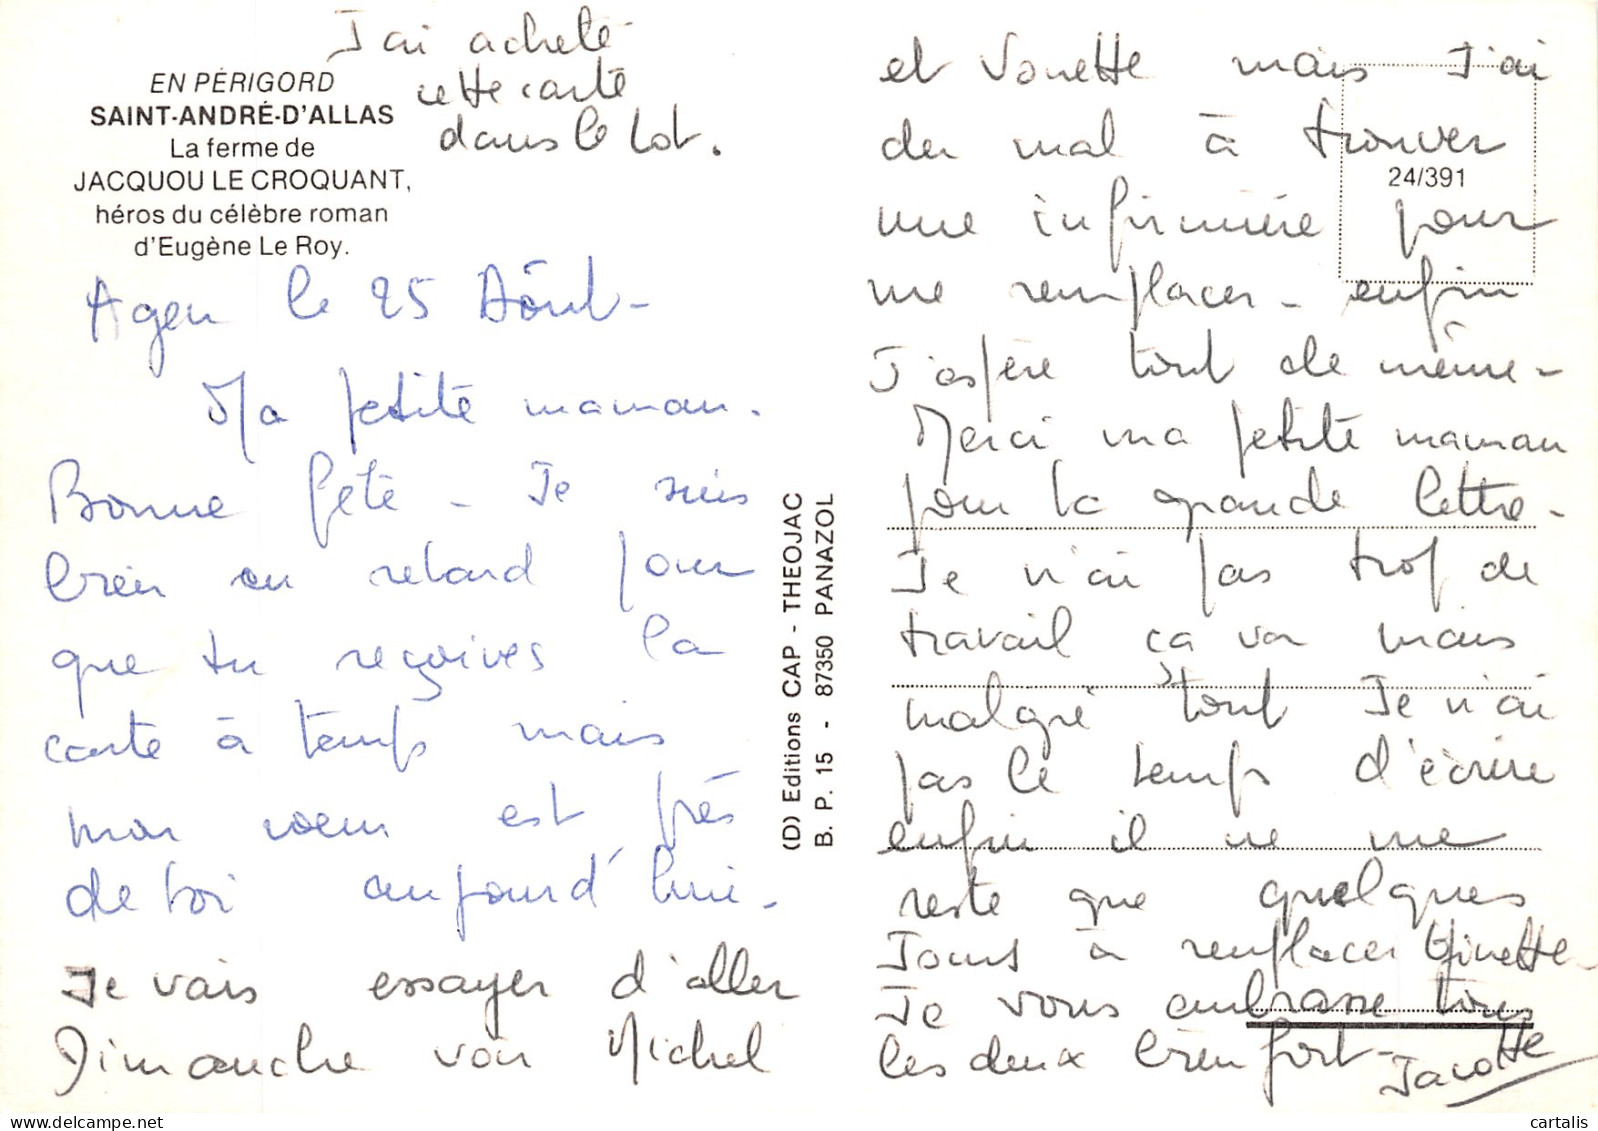 J'ai acheté
cette carte
dans le Lot.
EN PÉRIGORD
SAINT-ANDRÉ-D'ALLAS
La ferme de
JACQUOU LE CROQUANT,
héros du célèbre roman
d'Eugène Le Roy.
Agen le 25 Aôut-
Ma petite maman.
Bonne fête - Je suis
bien en retard pour
que tu reçoives la
carte à temps mais
mon coeur est près
de toi aujourd'hui -
Je vais essayer d'aller
Dimanche voir Michel
(D) Editions CAP - THEOJAC
B. P. 15 - 87350 PANAZOL
24/391
et Vonette mais J'ai
du mal à trouver
une infirmière pour
me remplacer - enfin
J'espère tout de même -
Merci ma petite maman
pour ta grande lettre -
Je n'ai pas trop de
travail ça va mais
malgré tout Je n'ai
pas le temps d'écrire
enfin il ne me
reste que quelques
Jours à remplacer Ginette -
Je vous embrasse tous
les deux bien fort -
Jacotte
cartalis.com